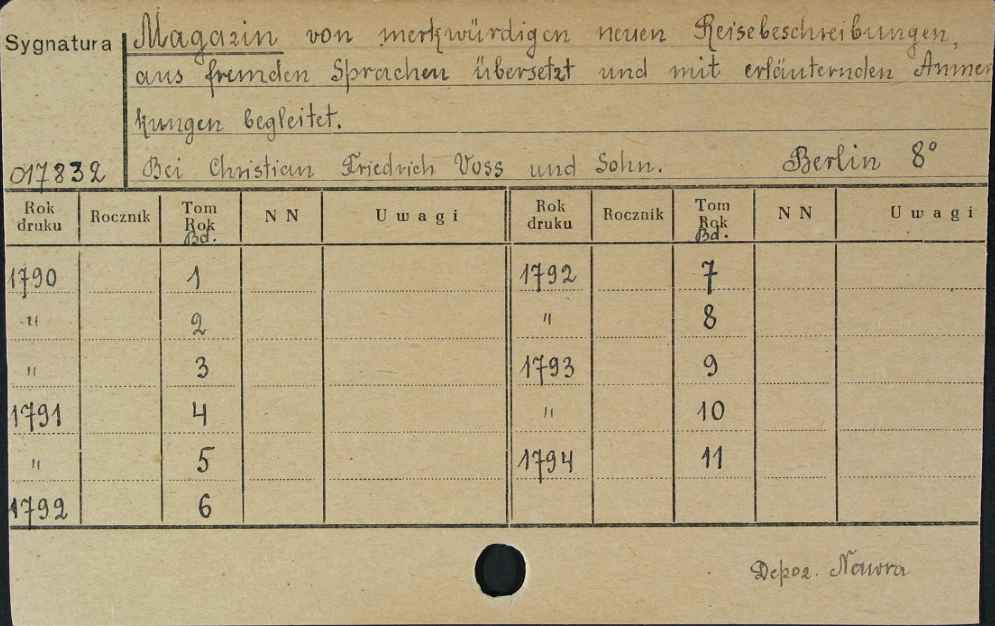 Sygnatura
Magazin von merkwürdigen neuen Reisebeschreibungen,
aus fremden Sprachen übersetzt und mit erläuternden Anmer
kungen begleitet.
017832
Bei Christian Friedrich Voss und Sohn. Berlin 8°
Rok druku Rocznik Tom Rok Bd. N N Uwagi Rok druku Rocznik Tom Rok Bd. N N Uwagi
1790 1 1792 7
" 2 " 8
" 3 1793 9
1791 4 " 10
" 5 1794 11
1792 6
Depoz. Nawra